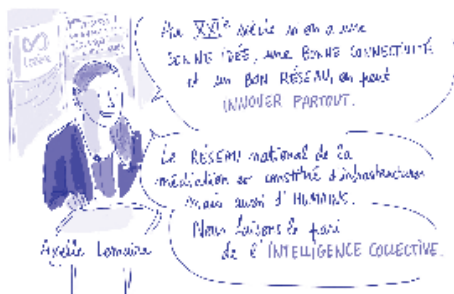 Au XXIe siècle si on a une
BONNE IDÉE, une BONNE CONNECTIVITÉ
et un BON RÉSEAU, on peut
INNOVER PARTOUT.
Le RÉSEAU national de la
médiation est constitué d'infrastructures
mais aussi d'HUMAINS.
Nous faisons le pari
de l'INTELLIGENCE COLLECTIVE.
Axelle Lemaire